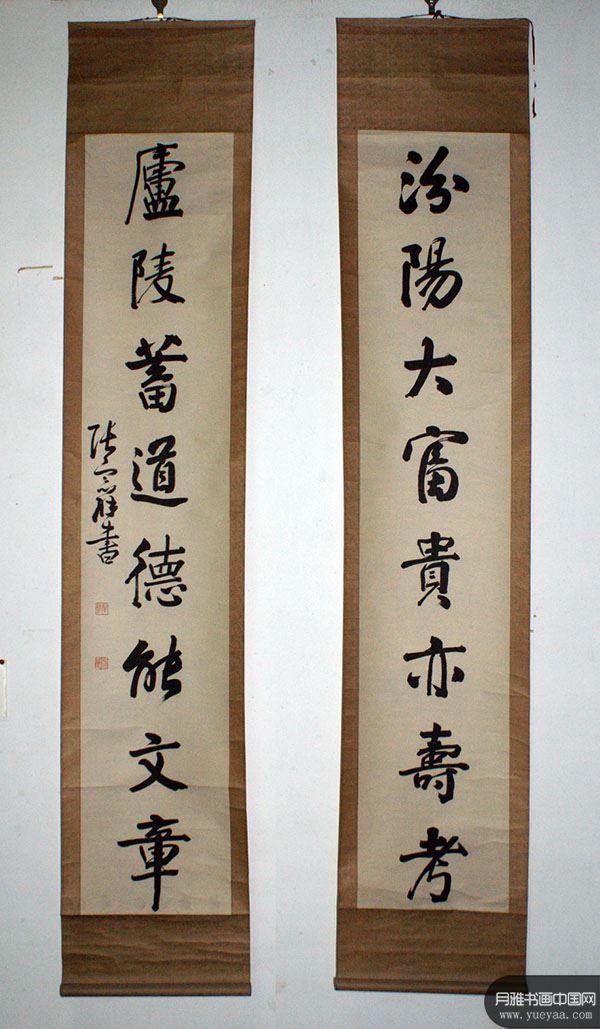 汾陽大富貴亦壽考
廬陵蓄道德能文章
張宗祥書
月雅书画中国网
www.yueyaa.com